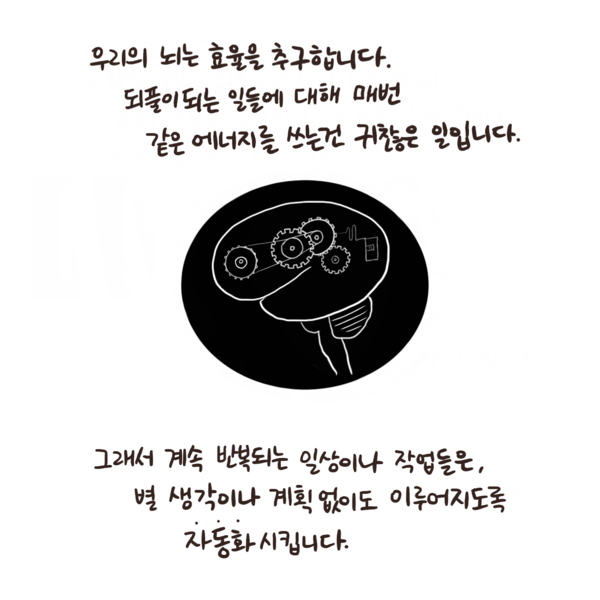 우리의 뇌는 효율을 추구합니다.
되풀이되는 일들에 대해 매번
같은 에너지를 쓰는건 귀찮은 일입니다.
그래서 계속 반복되는 일상이나 작업들은,
별 생각이나 계획 없이도 이루어지도록
자동화 시킵니다.